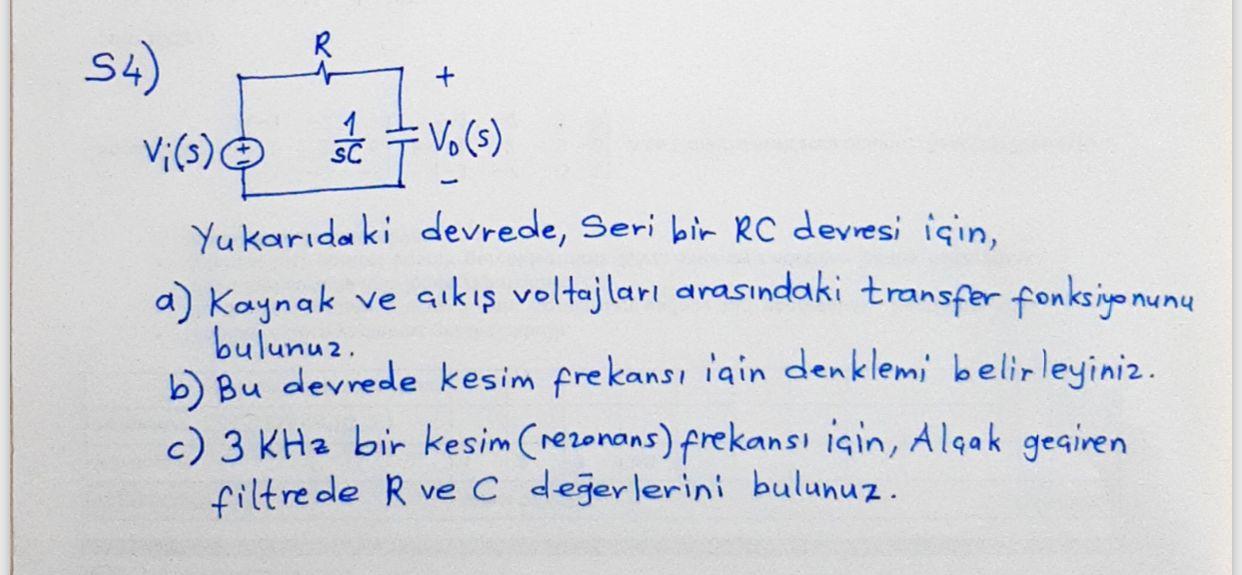 S4)
R
+
Vi(s) + - 1/sC Vo(s)
-
Yukarıdaki devrede, Seri bir RC devresi için,
a) Kaynak ve çıkış voltajları arasındaki transfer fonksiyonunu
bulunuz.
b) Bu devrede kesim frekansı için denklemi belirleyiniz.
c) 3 KHz bir kesim (rezonans) frekansı için, Alçak geçiren
filtrede R ve C değerlerini bulunuz.